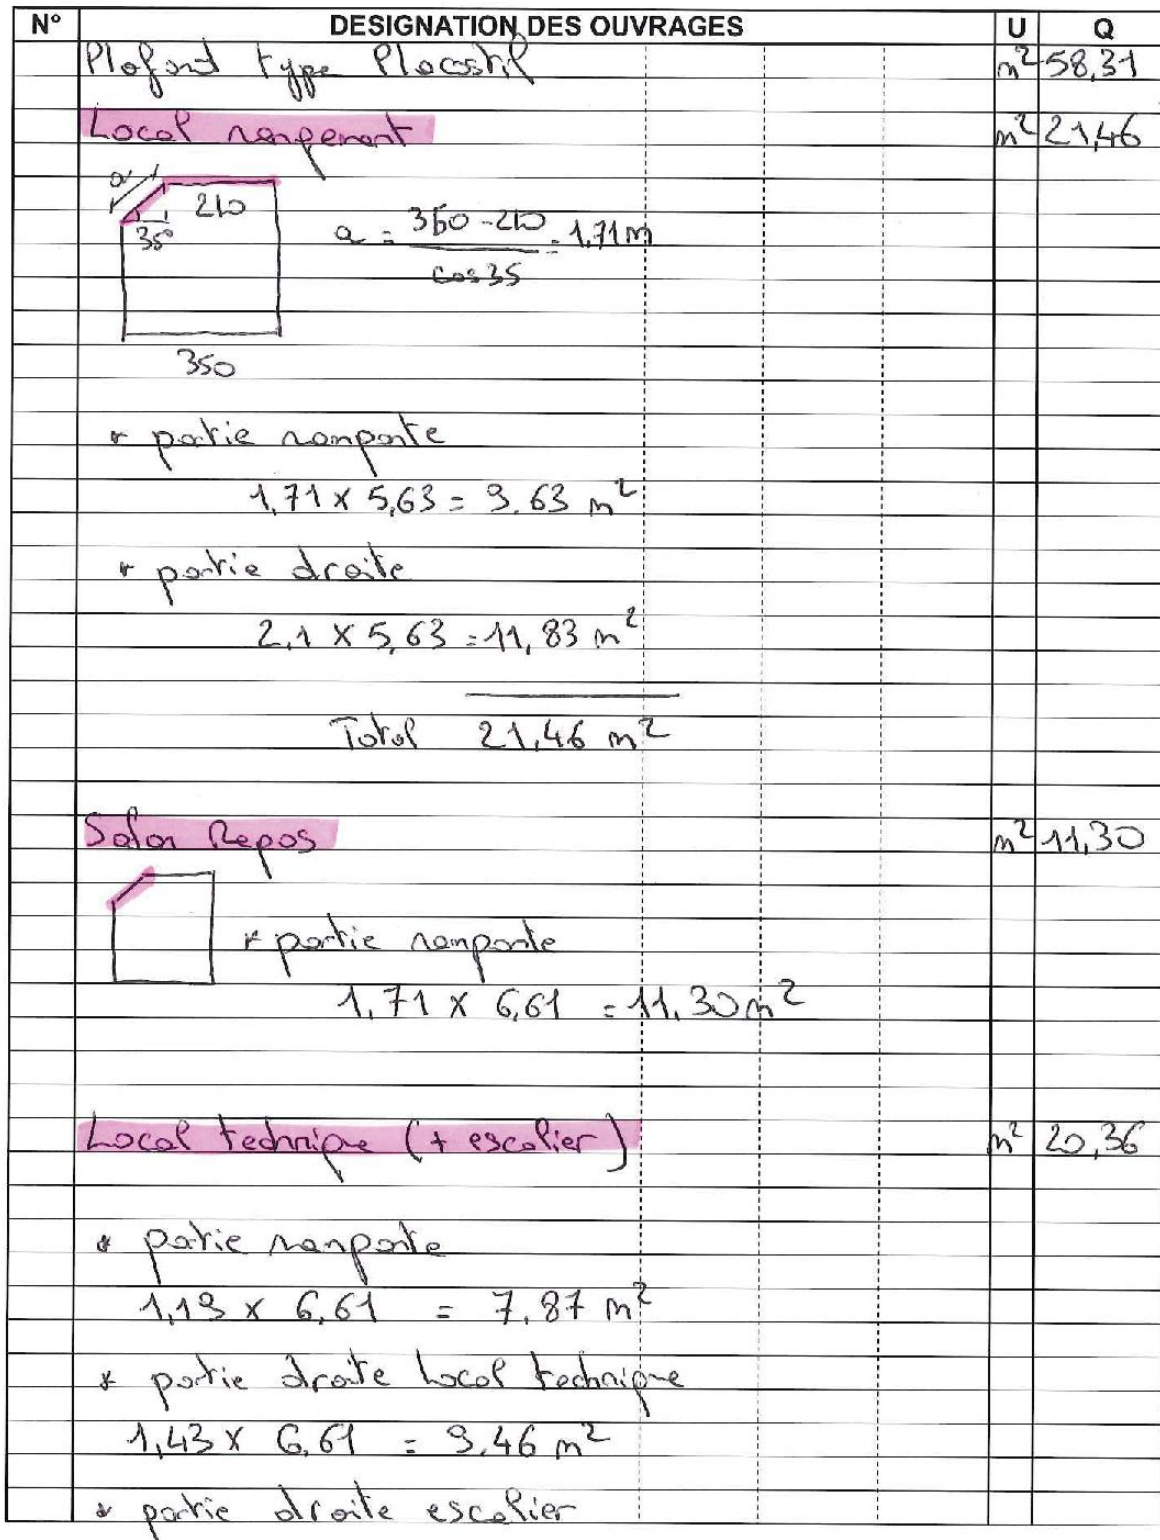 N° DESIGNATION DES OUVRAGES U Q
Plafond type Placostil m² 58,31
Local rangement m² 21,46
a
210
35°
a = 350 - 210 / cos 35 = 1,71 m
350
* partie rampante
1,71 x 5,63 = 9.63 m²
* partie droite
2,1 x 5,63 = 11,83 m²
Total 21,46 m²
Salon Repos m² 11,30
* partie rampante
1,71 x 6,61 = 11,30 m²
Local technique (+ escalier) m² 20,36
* partie rampante
1,19 x 6,61 = 7,87 m²
* partie droite local technique
1,43 x 6,61 = 9,46 m²
* partie droite escalier